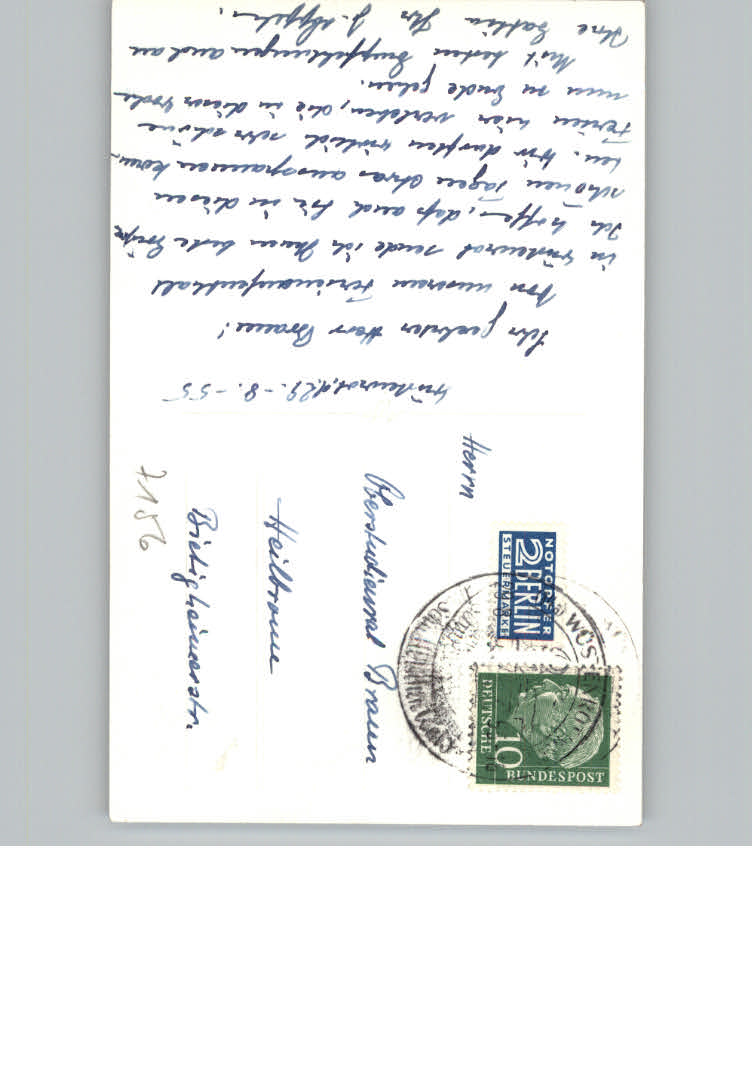 Wüstenrot, d. 29.-8.-55
Sehr geehrter Herr Braun!
Von unserem Ferienaufenthalt
in Wüstenrot sende ich Ihnen beste Grüße
Ich hoffe, daß auch Sie in diesen
schönen Tagen etwas ausspannen kön-
nen. Wir durften wirklich sehr schöne
Ferien hier verleben, die in dieser Woche
nun zu Ende gehen.
Mit besten Empfehlungen auch an
Ihre Gattin Ihr
Herrn
Oberstudienrat Braun
Heilbronn
Bietigheimerstr.
7156
NOTOPFER
2 BERLIN
STEUERMARKE
DEUTSCHE
10
BUNDESPOST
WÜSTENROT